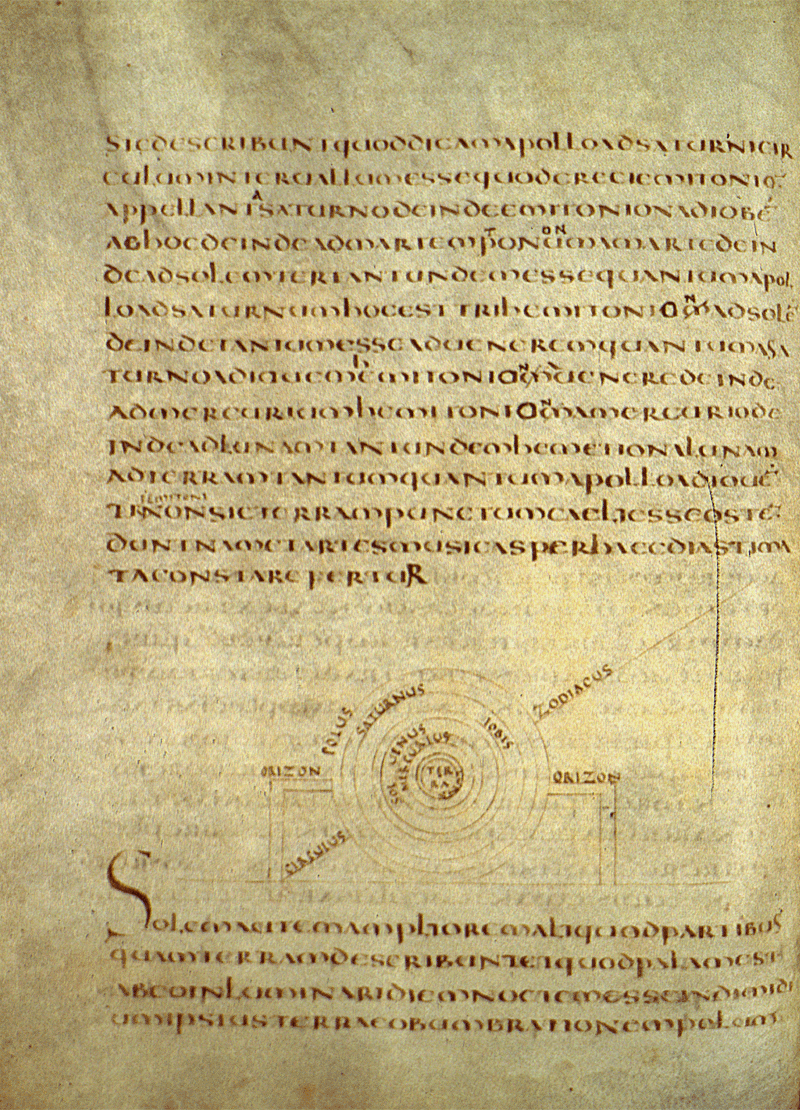 SIC DESCRIBUNT QUOD DICAM A POLLO AD SATURNI CIR
CULUM INTERUALLUM ESSE QUOD
APPELLANT A SATURNO DEINDE EMITONION AD IOBĒ
AB HOC DEINDE AD MARTEM TONON A MARTE DEIN
DE AD SOLEM TANTUNDEM ESSE QUANTUM A POL
LO AD SATURNUM HOC EST TRIHEMITONION A SOLĒ
DEINDE TANTUM ESSE AD UENEREM QUANTUM A SA
TURNO AD IOUEM HEMITONION A UENERE DEINDE
AD MERCURIUM HEMITONION A MERCURIO DE
INDE AD LUNAM TANTUNDEM HEMETION A LUNAM
AD TERRAM TANTUM QUANTUM A POLLO AD IOUĒ
NON SIC TERRAM PUNCTUM CAELI ESSE OSTĒ
DUNT NAM ET ARTES MUSICAS PER HAEC DIASTIMA
TA CONSTARE FERTUR
POLUS
SATURNUS
IOBIS
ZODIACUS
UENUS
SOL
TERRA
ORIZON
ORIZON
CIRCULUS
SOLEM AUTEM AMPLIOREM ALIQUOD PARTIBUS
QUAM TERRAM DESCRIBUNT QUOD PALAM EST
AB EO INLUMINARI DIEM NOCTEM ESSE
UM IPSIUS TERRAE OBUMBRATIONEM